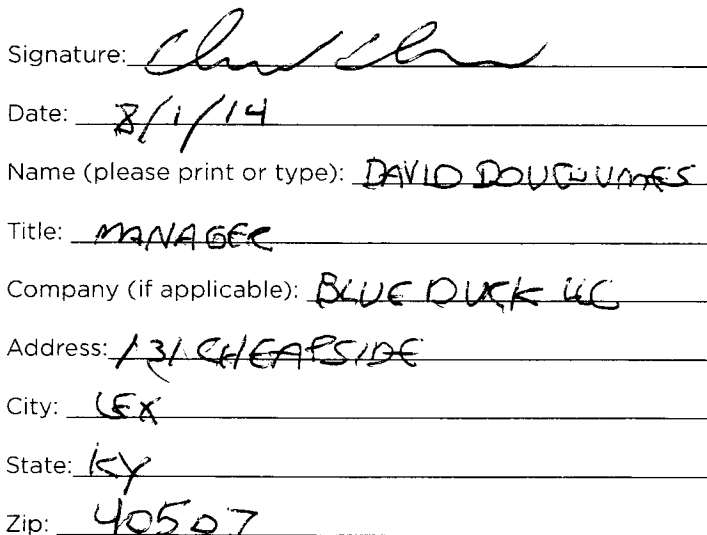 Signature:
Date: 8/1/14
Name (please print or type): DAVID
Title: MANAGER
Company (if applicable): BLUE DUCK LLC
Address: 131 CHEAPSIDE
City: LEX
State: KY
Zip: 40507